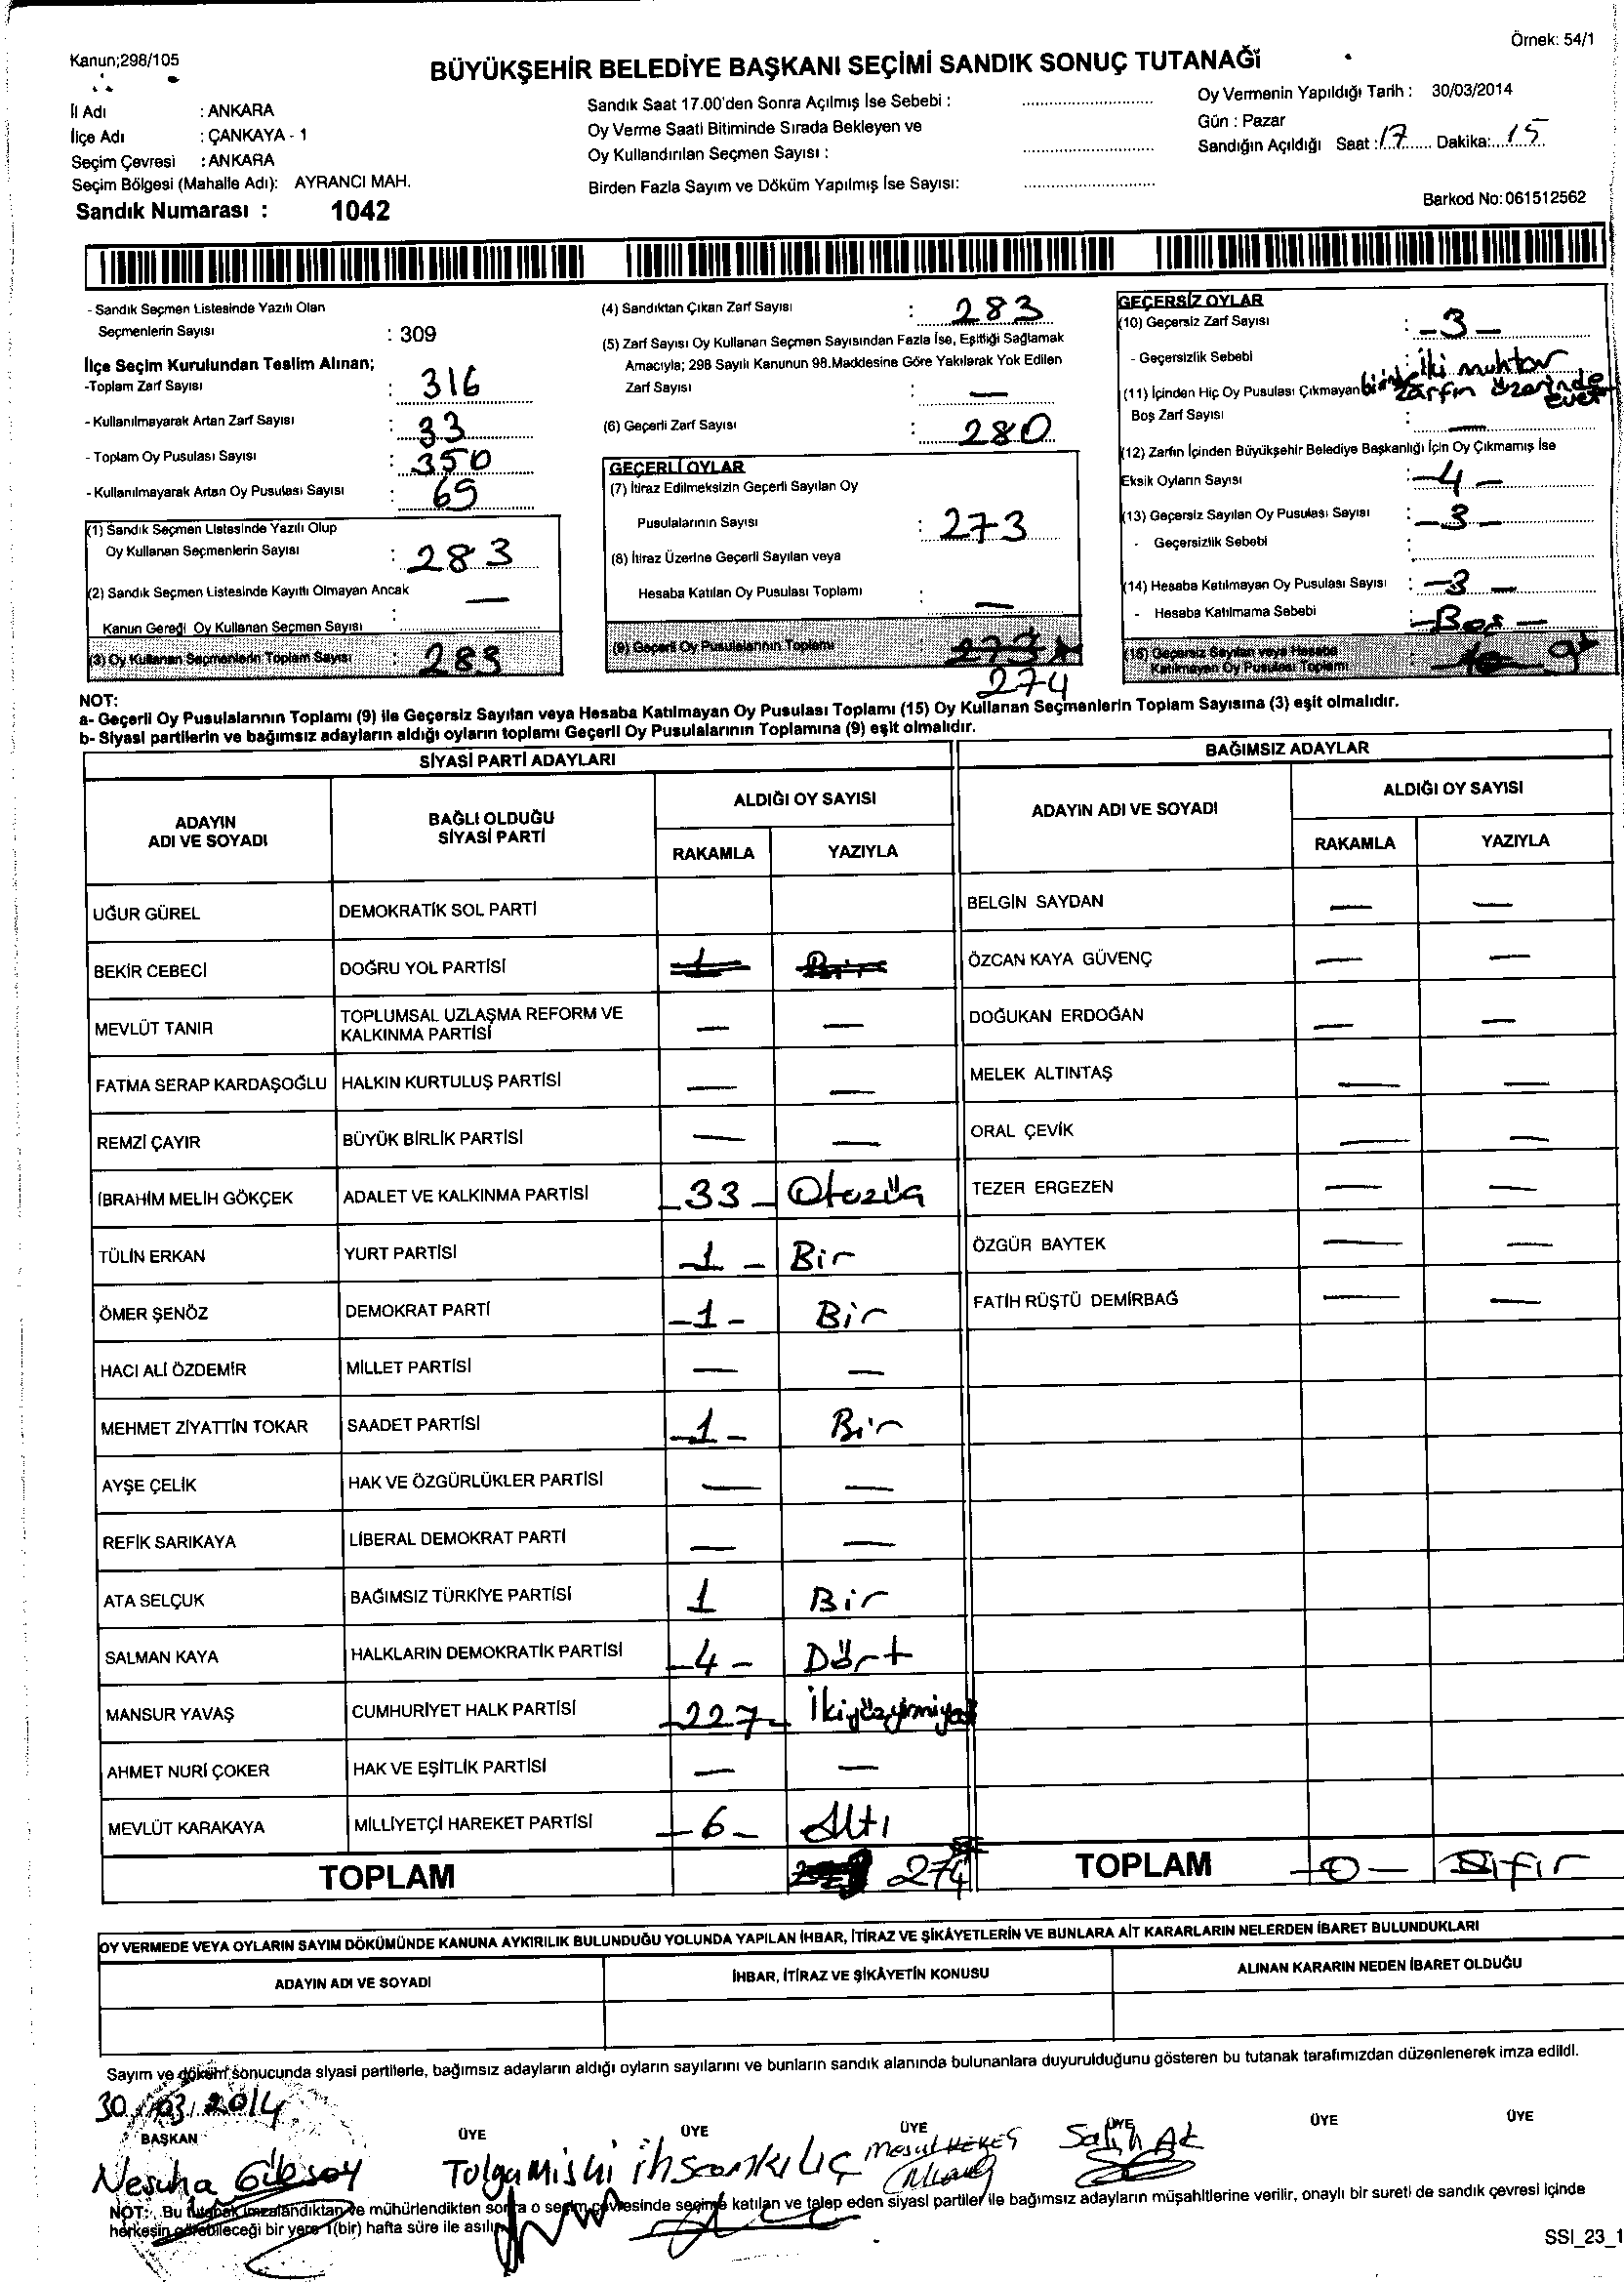 Örnek: 54/1
Kanun;298/105
BÜYÜKŞEHİR BELEDİYE BAŞKANI SEÇİMİ SANDIK SONUÇ TUTANAĞI
İl Adı : ANKARA
İlçe Adı : ÇANKAYA - 1
Seçim Çevresi : ANKARA
Seçim Bölgesi (Mahalle Adı): AYRANCI MAH.
Sandık Numarası : 1042
Sandık Saat 17.00'den Sonra Açılmış İse Sebebi :
Oy Verme Saati Bitiminde Sırada Bekleyen ve
Oy Kullandırılan Seçmen Sayısı :
Birden Fazla Sayım ve Döküm Yapılmış İse Sayısı:
Oy Vermenin Yapıldığı Tarih : 30/03/2014
Gün : Pazar
Sandığın Açıldığı Saat : 17 Dakika: 15
Barkod No: 061512562
- Sandık Seçmen Listesinde Yazılı Olan
Seçmenlerin Sayısı : 309
İlçe Seçim Kurulundan Teslim Alınan;
-Toplam Zarf Sayısı : 316
- Kullanılmayarak Artan Zarf Sayısı : 33
- Toplam Oy Pusulası Sayısı : 350
- Kullanılmayarak Artan Oy Pusulası Sayısı : 69
(1) Sandık Seçmen Listesinde Yazılı Olup
Oy Kullanan Seçmenlerin Sayısı : 283
(2) Sandık Seçmen Listesinde Kayıtlı Olmayan Ancak
Kanun Gereği Oy Kullanan Seçmen Sayısı : —
(3) Oy Kullanan Seçmenlerin Toplam Sayısı : 283
(4) Sandıktan Çıkan Zarf Sayısı : 283
(5) Zarf Sayısı Oy Kullanan Seçmen Sayısından Fazla İse, Eşitliği Sağlamak
Amacıyla; 298 Sayılı Kanunun 98.Maddesine Göre Yakılarak Yok Edilen
Zarf Sayısı : —
(6) Geçerli Zarf Sayısı : 280
GEÇERLİ OYLAR
(7) İtiraz Edilmeksizin Geçerli Sayılan Oy
Pusulalarının Sayısı : 273
(8) İtiraz Üzerine Geçerli Sayılan veya
Hesaba Katılan Oy Pusulası Toplamı : —
(9) Geçerli Oy Pusulalarının Toplamı : 273
274
GEÇERSİZ OYLAR
(10) Geçersiz Zarf Sayısı : -3-
- Geçersizlik Sebebi : iki muhtar
(11) İçinden Hiç Oy Pusulası Çıkmayan zarfın üzerinde
Boş Zarf Sayısı : — evet
(12) Zarfın İçinden Büyükşehir Belediye Başkanlığı İçin Oy Çıkmamış İse
Eksik Oyların Sayısı : -4-
(13) Geçersiz Sayılan Oy Pusulası Sayısı : -3-
- Geçersizlik Sebebi :
(14) Hesaba Katılmayan Oy Pusulası Sayısı : -3-
- Hesaba Katılmama Sebebi : -Boş-
(15) Geçersiz Sayılan veya Hesaba
Katılmayan Oy Pusulası Toplamı : 9
NOT:
a- Geçerli Oy Pusulalarının Toplamı (9) ile Geçersiz Sayılan veya Hesaba Katılmayan Oy Pusulası Toplamı (15) Oy Kullanan Seçmenlerin Toplam Sayısına (3) eşit olmalıdır.
b- Siyasi partilerin ve bağımsız adayların aldığı oyların toplamı Geçerli Oy Pusulalarının Toplamına (9) eşit olmalıdır.
SİYASİ PARTİ ADAYLARI
ADAYIN ADI VE SOYADI BAĞLI OLDUĞU SİYASİ PARTİ ALDIĞI OY SAYISI
RAKAMLA YAZIYLA
UĞUR GÜREL DEMOKRATİK SOL PARTİ
BEKİR CEBECİ DOĞRU YOL PARTİSİ 1 Bir
MEVLÜT TANIR TOPLUMSAL UZLAŞMA REFORM VE KALKINMA PARTİSİ — —
FATMA SERAP KARDAŞOĞLU HALKIN KURTULUŞ PARTİSİ — —
REMZİ ÇAYIR BÜYÜK BİRLİK PARTİSİ — —
İBRAHİM MELİH GÖKÇEK ADALET VE KALKINMA PARTİSİ -33- Otuzüç
TÜLİN ERKAN YURT PARTİSİ -1- Bir
ÖMER ŞENÖZ DEMOKRAT PARTİ -1- Bir
HACI ALİ ÖZDEMİR MİLLET PARTİSİ — —
MEHMET ZİYATTİN TOKAR SAADET PARTİSİ -1- Bir
AYŞE ÇELİK HAK VE ÖZGÜRLÜKLER PARTİSİ — —
REFİK SARIKAYA LİBERAL DEMOKRAT PARTİ — —
ATA SELÇUK BAĞIMSIZ TÜRKİYE PARTİSİ 1 Bir
SALMAN KAYA HALKLARIN DEMOKRATİK PARTİSİ -4- Dört
MANSUR YAVAŞ CUMHURİYET HALK PARTİSİ -227-
AHMET NURİ ÇOKER HAK VE EŞİTLİK PARTİSİ — —
MEVLÜT KARAKAYA MİLLİYETÇİ HAREKET PARTİSİ -6- Altı
TOPLAM 274
BAĞIMSIZ ADAYLAR
ADAYIN ADI VE SOYADI ALDIĞI OY SAYISI
RAKAMLA YAZIYLA
BELGİN SAYDAN — —
ÖZCAN KAYA GÜVENÇ — —
DOĞUKAN ERDOĞAN — —
MELEK ALTINTAŞ — —
ORAL ÇEVİK — —
TEZER ERGEZEN — —
ÖZGÜR BAYTEK — —
FATİH RÜŞTÜ DEMİRBAĞ — —
TOPLAM -0- Sıfır
OY VERMEDE VEYA OYLARIN SAYIM DÖKÜMÜNDE KANUNA AYKIRILIK BULUNDUĞU YOLUNDA YAPILAN İHBAR, İTİRAZ VE ŞİKÂYETLERİN VE BUNLARA AİT KARARLARIN NELERDEN İBARET BULUNDUKLARI
ADAYIN ADI VE SOYADI İHBAR, İTİRAZ VE ŞİKÂYETİN KONUSU ALINAN KARARIN NEDEN İBARET OLDUĞU
Sayım ve döküm sonucunda siyasi partilerle, bağımsız adayların aldığı oyların sayılarını ve bunların sandık alanında bulunanlara duyurulduğunu gösteren bu tutanak tarafımızdan düzenlenerek imza edildi.
30/03/2014
BAŞKAN ÜYE ÜYE ÜYE ÜYE ÜYE ÜYE
Tolga Mesut Salih Ak
NOT: Bu tutanak imzalandıktan ve mühürlendikten sonra o seçim çevresinde seçime katılan ve talep eden siyasi partiler ile bağımsız adayların müşahitlerine verilir, onaylı bir sureti de sandık çevresi içinde
herkesin görebileceği bir yere 1(bir) hafta süre ile asılır.
SSI_23_1